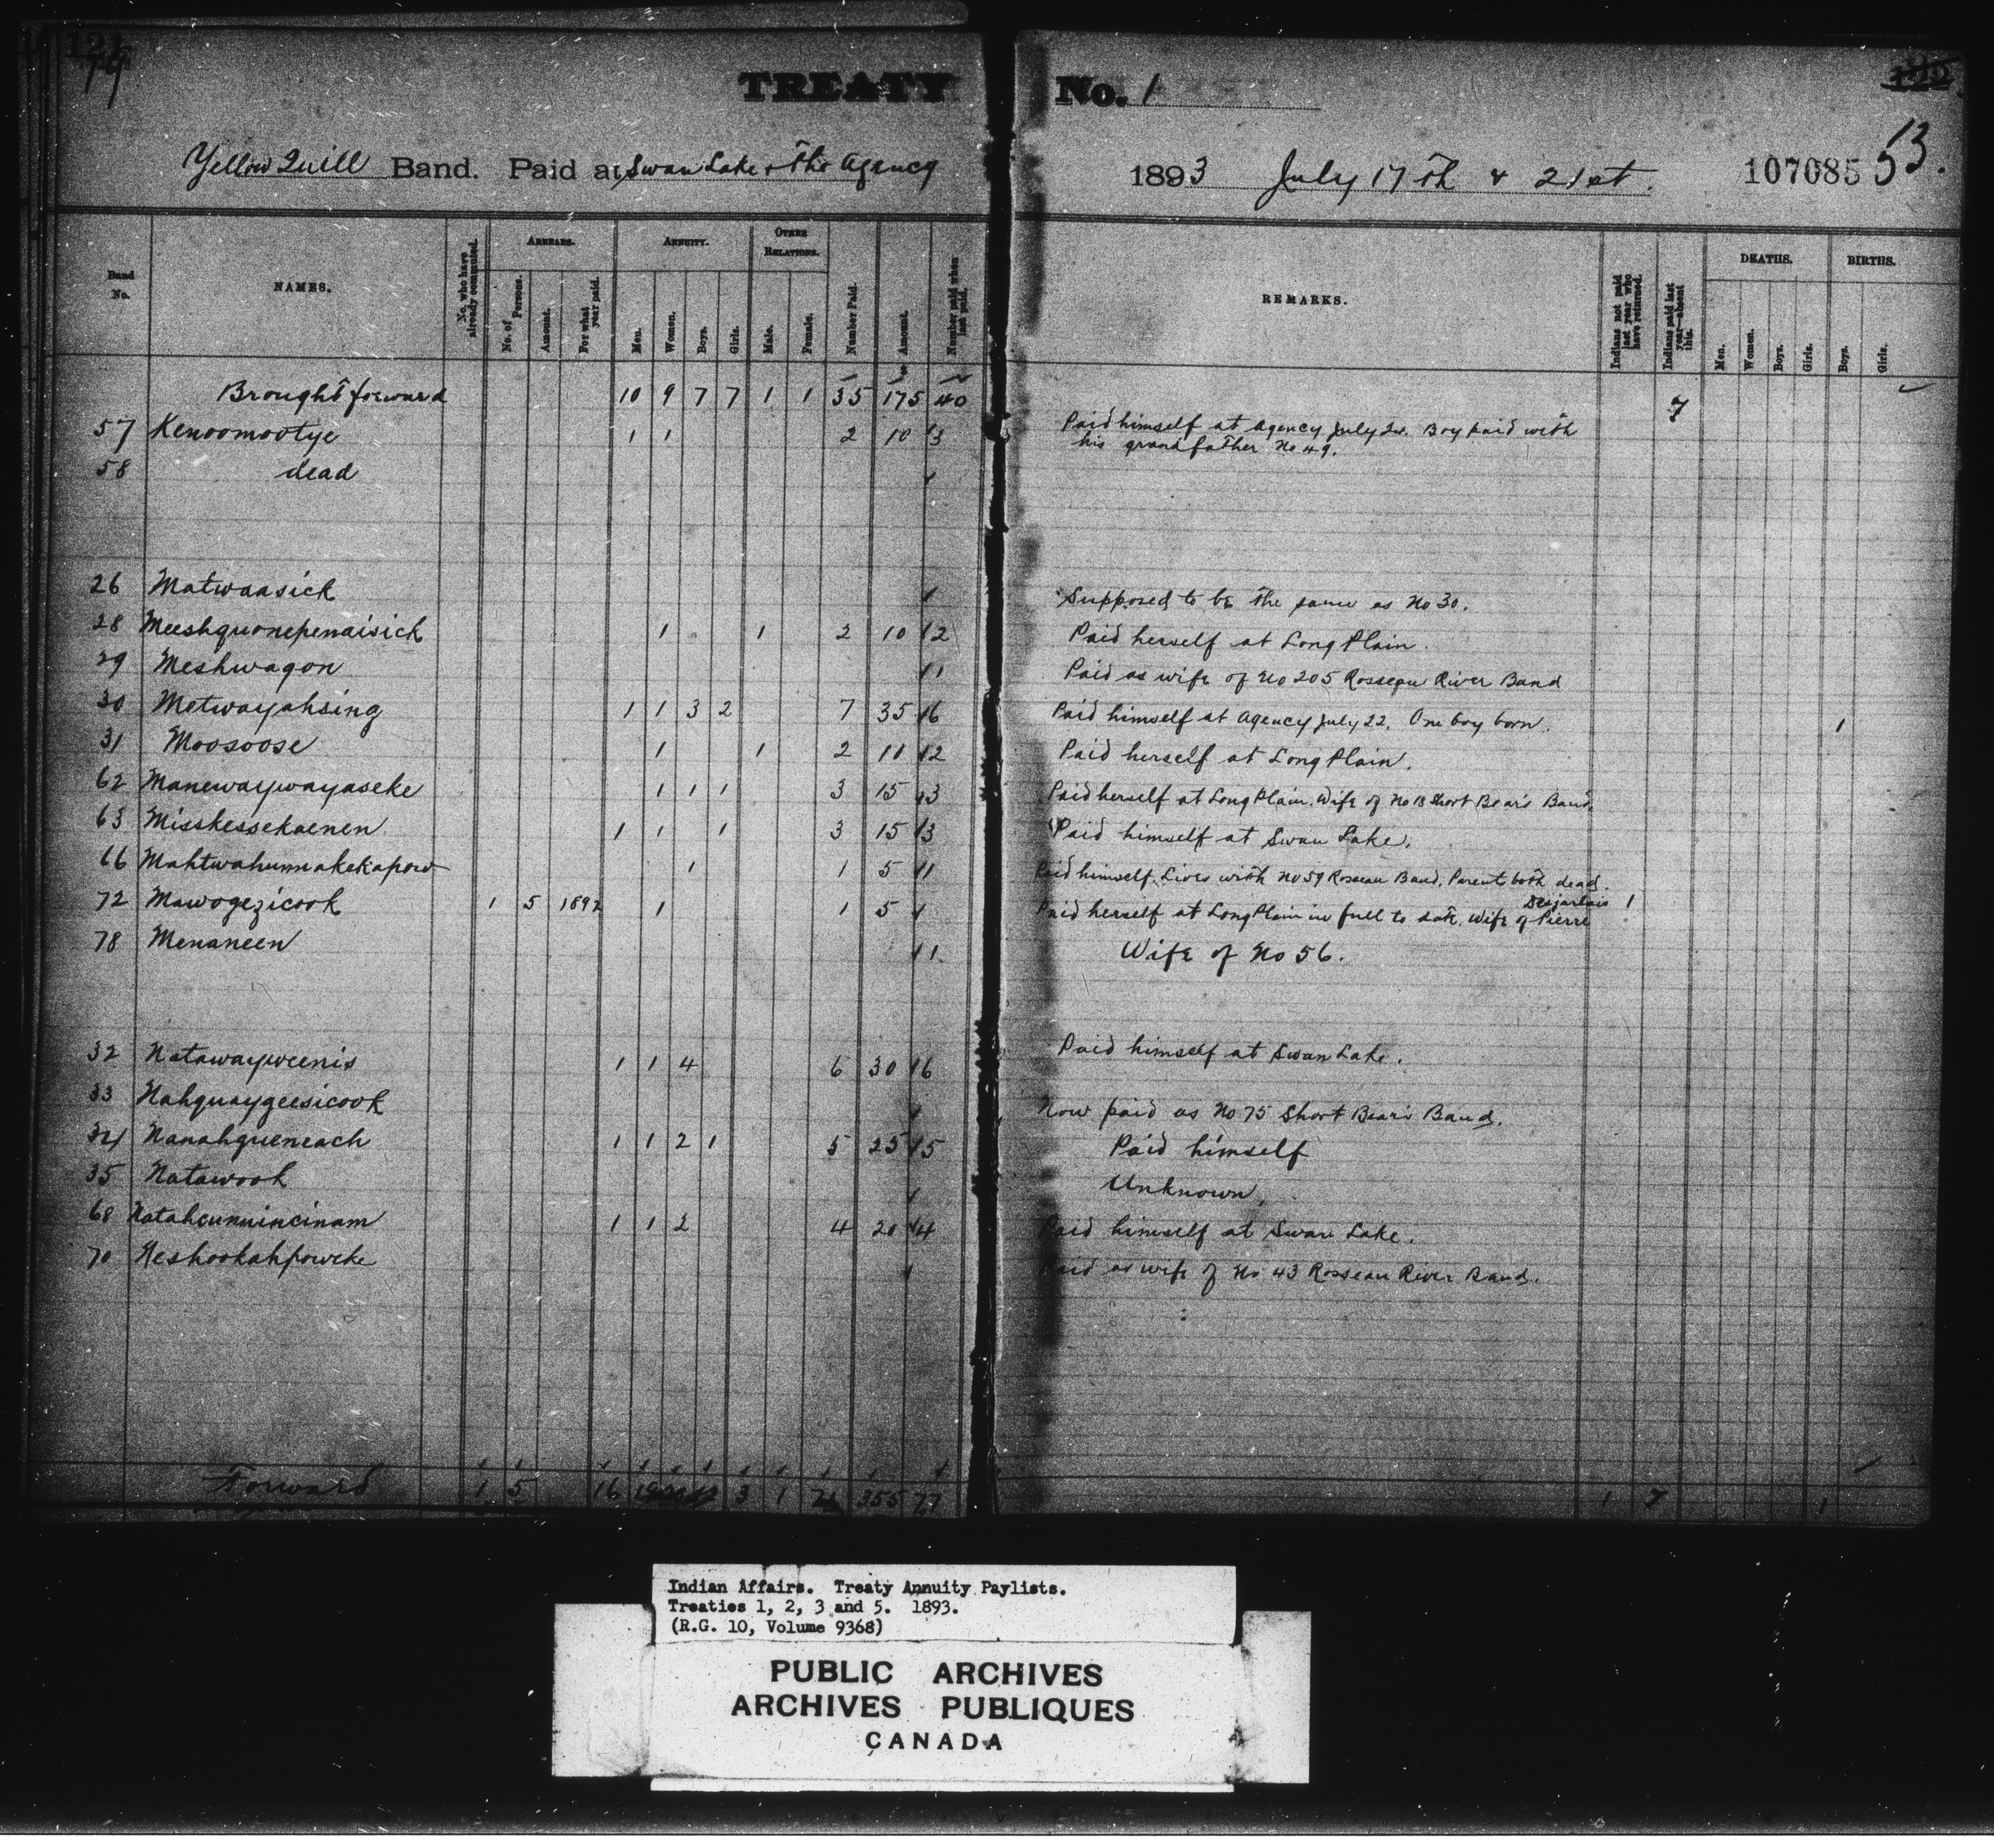 TREATY No. 1
Yellow Quill Band. Paid at Swan Lake & the Agency 1893 July 17th & 21st. 107085 53.
Band No. NAMES. No. who have already commuted. ARREARS. No. of Persons. Amount. For what year paid. ANNUITY. Men. Women. Boys. Girls. OTHER RELATIONS. Male. Female. Number Paid. Amount. Number paid when last paid. REMARKS. Indians not paid last year who have returned. Indians paid last year—absent this. DEATHS. Men. Women. Boys. Girls. BIRTHS. Boys. Girls.
Brought forward 10 9 7 7 1 1 35 175 40 7
57 Kenoomootye 1 1 2 10 3 Paid himself at Agency July 22. Boy paid with
his grandfather No 49.
58 dead
26 Matwaasick Supposed to be the same as No 30.
28 Meeshquonepenaisick 1 1 2 10 2 Paid herself at Long Plain.
29 Meshwagon 1 Paid as wife of No 205 Rosseau River Band
30 Motwayahsing 1 1 3 2 7 35 6 Paid himself at Agency July 22. One boy born. 1
31 Moosoose 1 1 2 10 2 Paid herself at Long Plain.
62 Manewaywayaseke 1 1 1 3 15 3 Paid herself at Long Plain. Wife of No 13 Short Bear's Band.
63 Misskessekaenen 1 1 1 3 15 3 Paid himself at Swan Lake.
66 Mahtwahunnakekapow 1 1 5 1 Paid himself. Lives with No 59 Rosseau Band. Parents both dead.
72 Mawogezicook 1 5 1892 1 1 5 Paid herself at Long Plain in full to date. Wife of Pierre Desjarlais 1
78 Menaneen 1 Wife of No 56.
32 Natawayweenis 1 1 4 6 30 6 Paid himself at Swan Lake.
33 Nahquaygeesicook Now paid as No 75 Short Bear's Band.
34 Nanahqueneach 1 1 2 1 5 25 5 Paid himself
35 Natawook Unknown.
68 Natahcunnincinam 1 1 2 4 20 4 Paid himself at Swan Lake.
70 Neshookahpoweke Paid as wife of No 43 Rosseau River Band.
Forward 1 5 16 3 1 355 77 1 7 1
Indian Affairs. Treaty Annuity Paylists.
Treaties 1, 2, 3 and 5. 1893.
(R.G. 10, Volume 9368)
PUBLIC ARCHIVES
ARCHIVES PUBLIQUES
CANADA